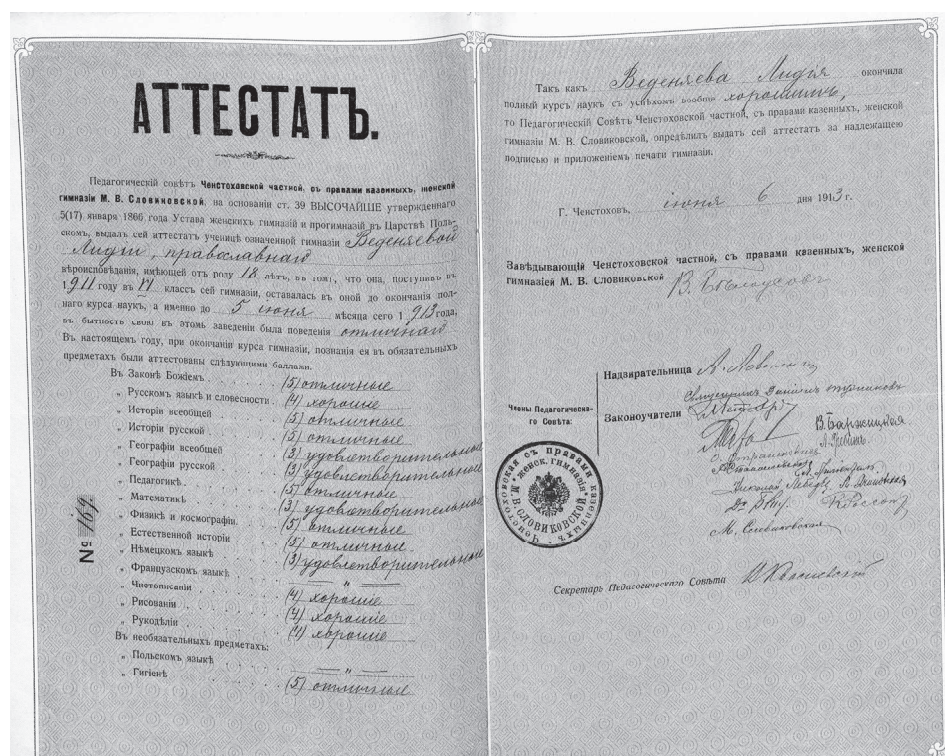 АТТЕСТАТЪ.
Педагогическій совѣтъ Ченстоховской частной, съ правами казенныхъ, женской
гимназіи М. В. Словиковской, на основаніи ст. 39 ВЫСОЧАЙШЕ утвержденнаго
5(17) января 1866 года Устава женскихъ гимназій и прогимназій въ Царствѣ Поль-
скомъ, выдалъ сей аттестатъ ученицѣ означенной гимназіи Веденяевой
Лидіи, православнаго
вѣроисповѣданія, имѣющей отъ роду 18 лѣтъ, въ томъ, что она, поступивъ въ
1911 году въ VI классъ сей гимназіи, оставалась въ оной до окончанія пол-
наго курса наукъ, а именно до 5 іюня мѣсяца сего 1913 года,
въ бытность свою въ этомъ заведеніи была поведенія отличнаго
Въ настоящемъ году, при окончаніи курса гимназіи, познанія ея въ обязательныхъ
предметахъ были аттестованы слѣдующими баллами.
Въ Законѣ Божіемъ (5) отличные
„ Русскомъ языкѣ и словесности (4) хорошіе
„ Исторіи всеобщей (5) отличные
„ Исторіи русской (5) отличные
„ Географіи всеобщей (3) удовлетворительные
„ Географіи русской (3) удовлетворительные
„ Педагогикѣ (5) отличные
„ Математикѣ (3) удовлетворительные
„ Физикѣ и космографіи (5) отличные
„ Естественной исторіи (5) отличные
„ Нѣмецкомъ языкѣ (3) удовлетворительные
„ Французскомъ языкѣ — „ —
„ Чистописаніи (4) хорошіе
„ Рисованіи (4) хорошіе
„ Рукодѣліи (4) хорошіе
Въ необязательныхъ предметахъ:
„ Польскомъ языкѣ — „ —
„ Гигіенѣ (5) отличные
№ 169.
Такъ какъ Веденяева Лидія окончила
полный курсъ наукъ съ успѣхомъ вообще хорошимъ,
то Педагогическій Совѣтъ Ченстоховской частной, съ правами казенныхъ, женской
гимназіи М. В. Словиковской, опредѣлилъ выдать сей аттестатъ за надлежащею
подписью и приложеніемъ печати гимназіи.
Г. Ченстоховъ, іюня 6 дня 1913 г.
Завѣдывающій Ченстоховской частной, съ правами казенныхъ, женской
гимназіей М. В. Словиковской В. Бѣлоусовъ
Надзирательница
Члены Педагогическа-
го Совѣта:
Законоучители Священникъ
В. Баржицкая
М. Словиковская
Ченстоховская съ правами казенныхъ
женск. гимназія
М. В. СЛОВИКОВСКОЙ
Секретарь Педагогическаго Совѣта